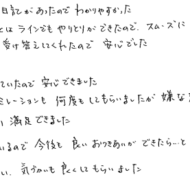 日記があったので わかりやすかった
とは ラインでも やりとりが できたので、スムーズに
受け答えしてくれたので 安心でした
ていたので 安心できました
ミレーションも 何度も してもらいましたが 嫌な
い 満足できました
いるので 今後も 良い おつきあいが できたら…と
い、気づかいも 良くして もらいました